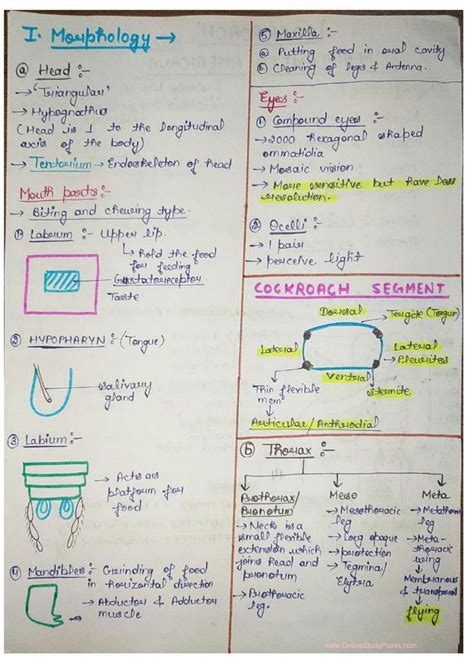 I. Morphology →
ⓐ Head :-
→ 'Triangular'
→ Hypognathus
(Head is ⊥ to the longitudinal
axis of the body)
→ Tentorium → Endoskeleton of head
Mouth parts :-
→ Biting and chewing type.
① Labrum :- Upper lip.
↳ hold the food
for feeding
Gustatoreceptor
Taste
② HYPOPHARYN :- (Tongue)
Salivary
gland
③ Labium :-
→ Acts as
platform for
food
④ Mandibles :- Grinding of food
in horizontal direction
→ Abductor & Adductor
muscles
⑤ Maxilla :-
ⓐ Putting food in oral cavity
ⓑ Cleaning of legs & Antenna.
Eyes :-
① Compound eyes :-
→ 2000 hexagonal shaped
ommatidia
→ Mosaic vision
→ More sensitive but have less
resolution.
② Ocelli :-
→ 1 pair
→ perceive light
COCKROACH SEGMENT
Dorsal
Tergite (Tergum)
Lateral
Lateral
Pleurites
Ventral
Sternite
Thin flexible
mem
Articular / Arthrodial
ⓑ Thorax :-
Prothorax/
Pronotum
→ Neck is a
small flexible
extension which
joins head and
pronotum
→ Prothoracic
leg.
Meso
→ Mesothoracic
leg
→ Long opaque
→ protection
→ Tegmina/
Elytra
Meta
→ Metathoracic
leg
→ Meta-
thoracic
wing
→ Membranous
& transparent
flying
www.OnlineStudyPoints.com